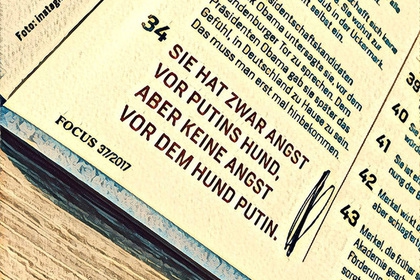 Foto: instag
schafft sich keine
Sie wohnt zur
selbst ein, in der Uckermark.
dentschaftskandidaten
Obama untersagte sie, vor dem
andenburger Tor zu sprechen. Dem
Präsidenten Obama gab sie später das
Gefühl, in Deutschland zu Hause zu sein.
Das muss man erst mal hinbekommen.
34
SIE HAT ZWAR ANGST
VOR PUTINS HUND,
ABER KEINE ANGST
VOR DEM HUND PUTIN.
FOCUS 37/2017
40
41 Sie ist
42 Merkel wirkt
aber schlagfer
43 Merkel, die früh
Akademie
Förderung